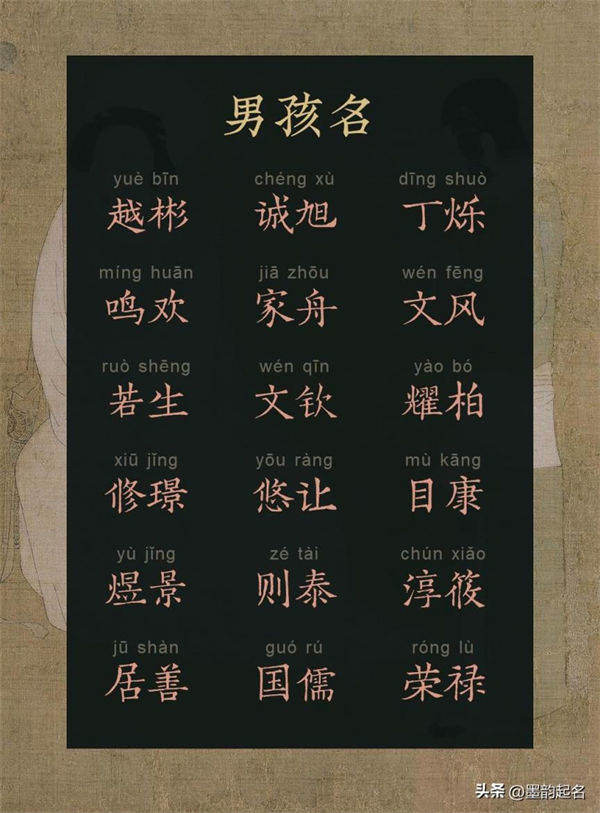 男孩名
yuè bīn chéng xù dīng shuò
越彬 诚旭 丁烁
míng huān jiā zhōu wén fēng
鸣欢 家舟 文风
ruò shēng wén qīn yào bó
若生 文钦 耀柏
xiū jǐng yōu ràng mù kāng
修璟 悠让 目康
yù jǐng zé tài chún xiǎo
煜景 则泰 淳筱
jū shàn guó rú róng lù
居善 国儒 荣禄
头条 @墨韵起名